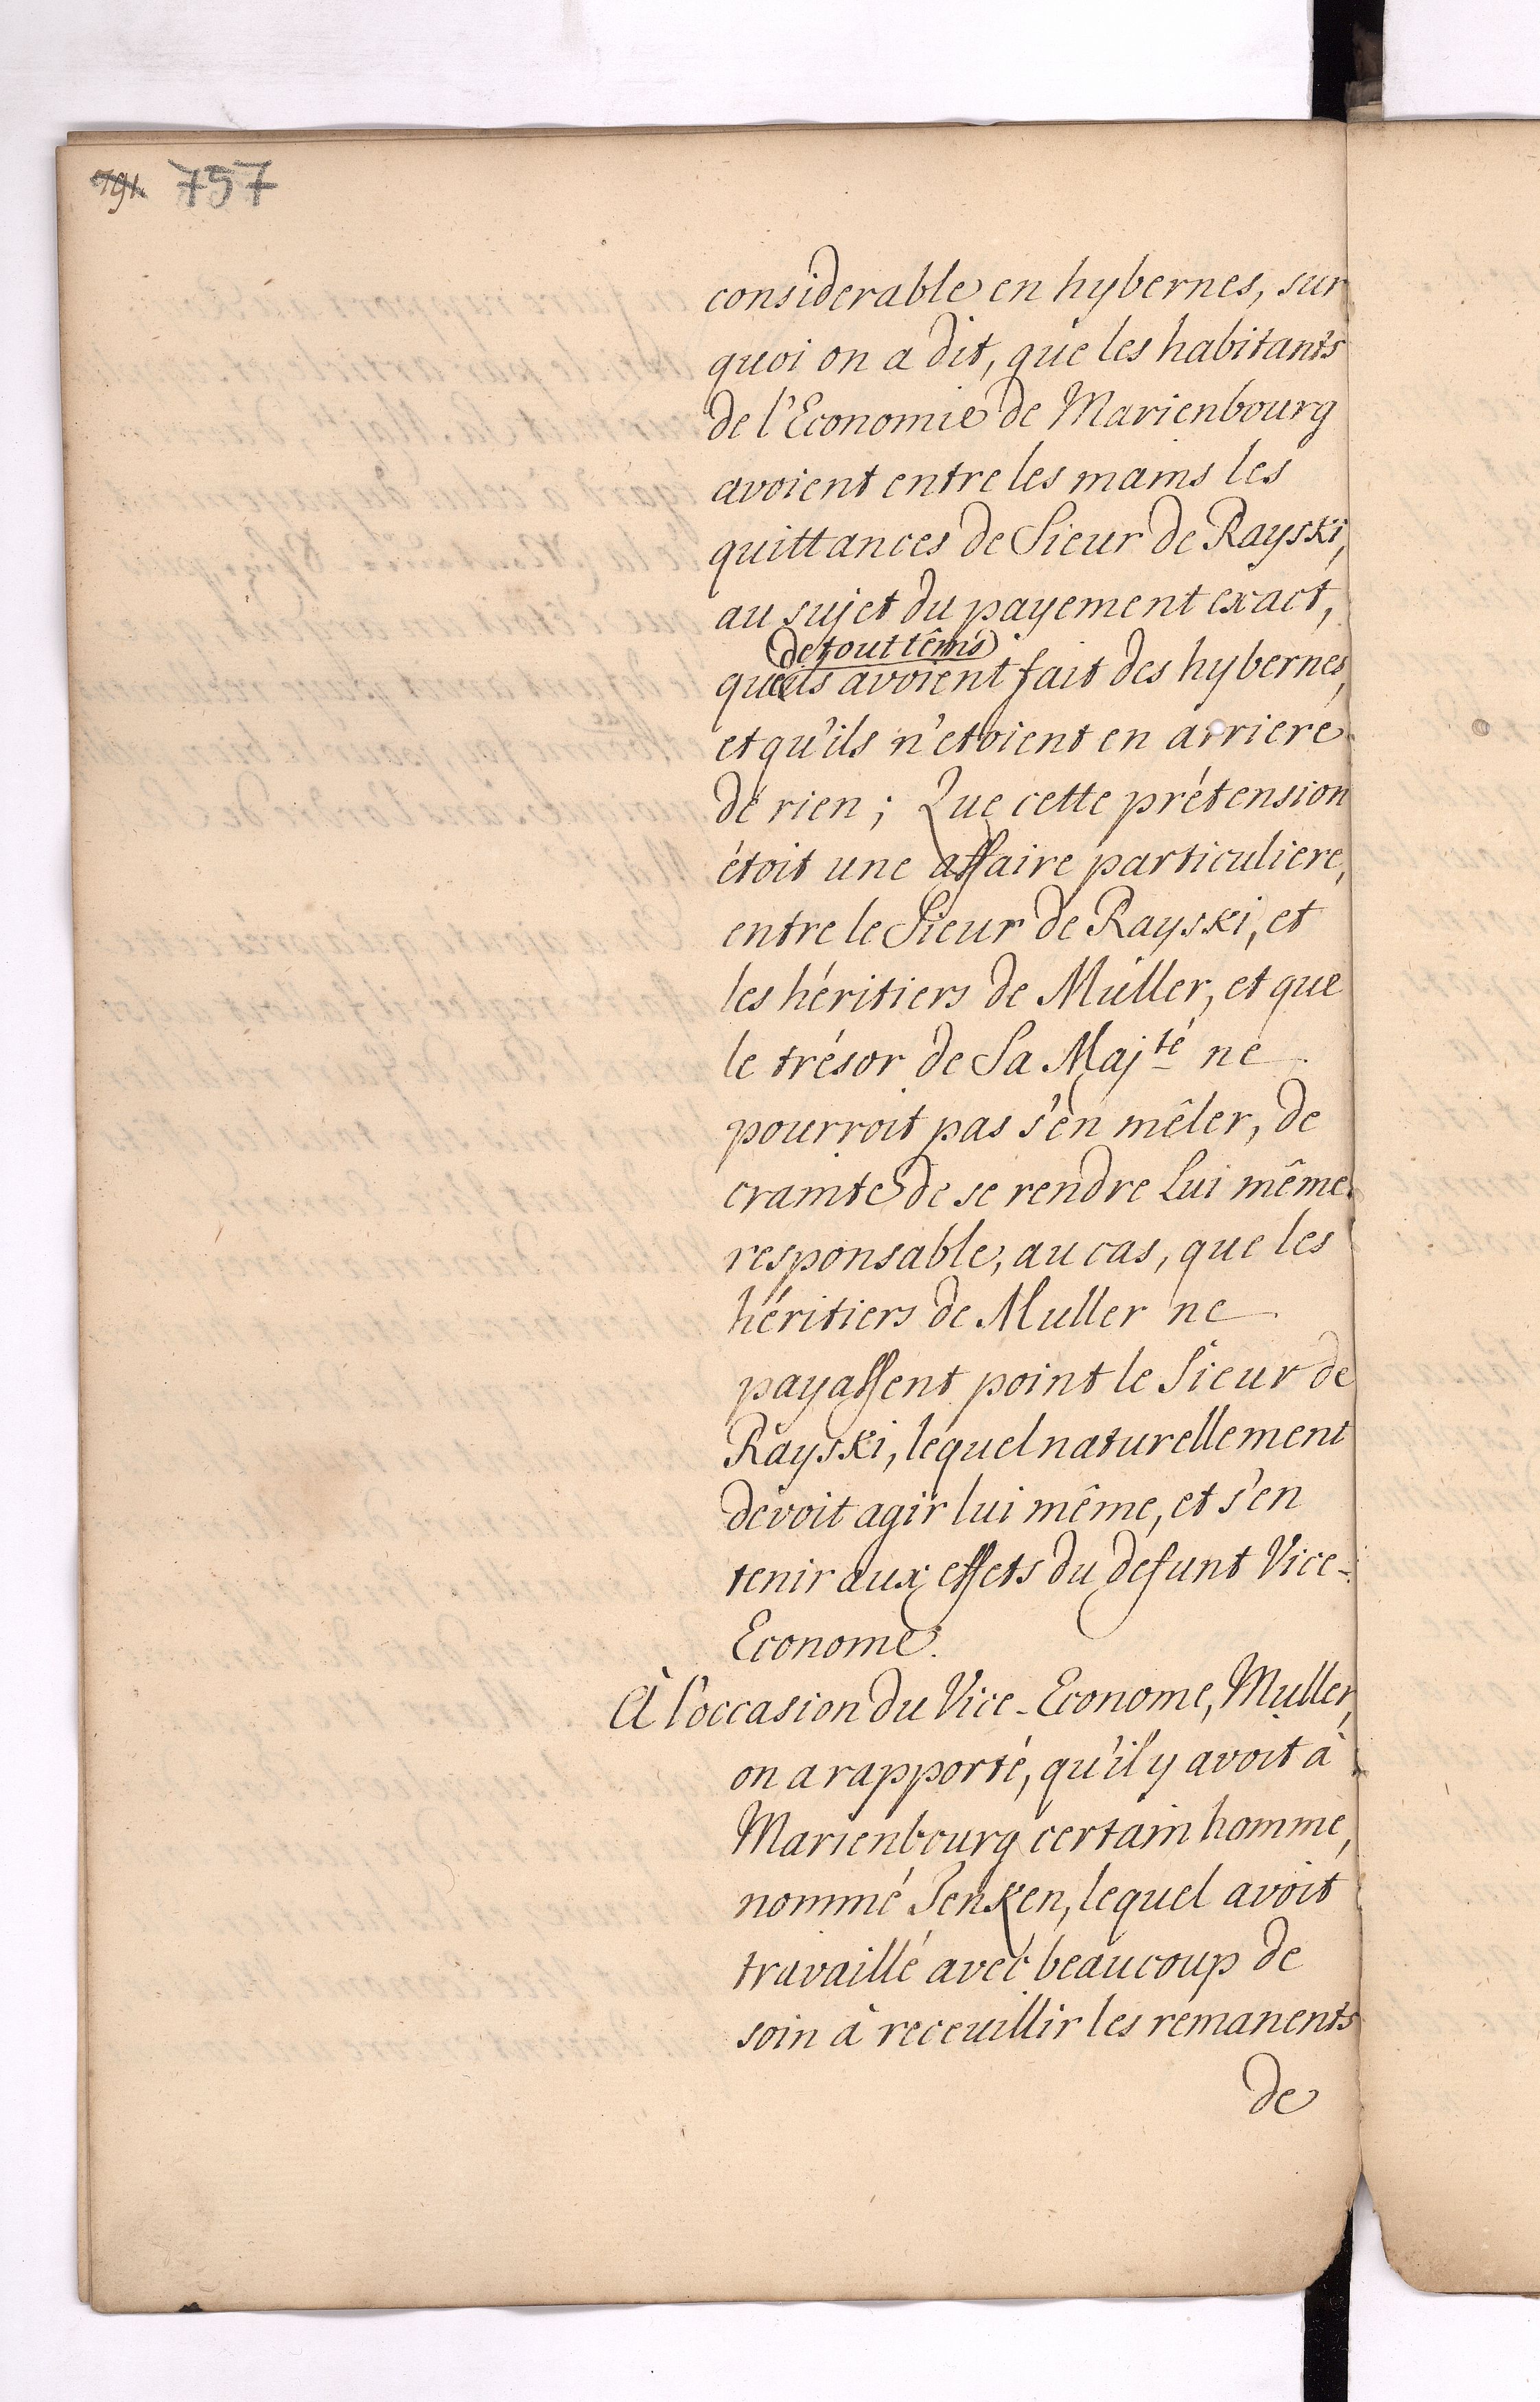 791. 757
considerable en hybernes, sur
quoi on a dit, que les habitants
de l'Economie de Marienbourg
avoient entre les mains les
quittances de Sieur de Rayski,
au sujet du payement exact,
de tout têms
qu'ils avoient fait des hybernes,
et qu'ils n'etoient en arriere
de rien; Que cette prétension
étoit une affaire particuliere,
entre le Sieur de Rayski, et
les héritiers de Müller, et que
le trésor de Sa Majté ne
pourroit pas s'en mêler, de
crainte de se rendre Lui même
responsable, au cas, que les
héritiers de Muller ne
payassent point le Sieur de
Rayski, lequel naturellement
devoit agir lui même, et s'en
tenir aux effets du defunt Vice-
Econome.
À l'occasion du Vice-Econome, Muller,
on a rapporté, qu'il y avoit à
Marienbourg certain homme,
nommé Jenken, lequel avoit
travaillé avec beaucoup de
soin à receuillir les remanents
de